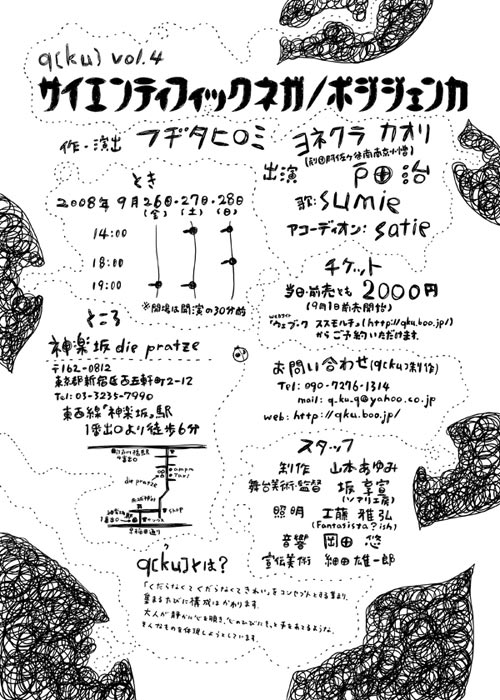 q(ku) vol.4
サイエンティフィックネガ/ポジジェンカ
作・演出 フヂタヒロミ
出演 ヨネクラ カオリ
戸田 治
歌: sumie
アコーディオン: satie
とき
2008年 9月26日・27日・28日
(金) (土) (日)
14:00
18:00
19:00
※開場は開演の30分前
チケット
当日・前売とも 2000円
(9月1日前売開始)
ウェブサイト
「ウェブーク ススモルチ」(http://qku.boo.jp/)
からご予約いただけます。
ところ
神楽坂 die pratze
〒162-0812
東京都新宿区西五軒町2-12
Tel: 03-3235-7990
東西線『神楽坂』駅
1番出口より徒歩6分
die pratze
お問い合わせ(q(ku)制作)
Tel: 090-7276-1314
mail: q.ku.q@yahoo.co.jp
web: http://qku.boo.jp/
スタッフ
制作 山本あゆみ
舞台美術・監督 坂 享宣
(ツマリ工房)
照明 工藤 雅弘
(Fantasista?ish)
音響 岡田 悠
宣伝美術 細田雄一郎
q(ku)とは?
「くだらなくてくだらなくてきれい」をコンセプトとする集まり。
集まるたびに構成はかわります。
大人が静かに心を開き、
そんなものを体現しようとしています。